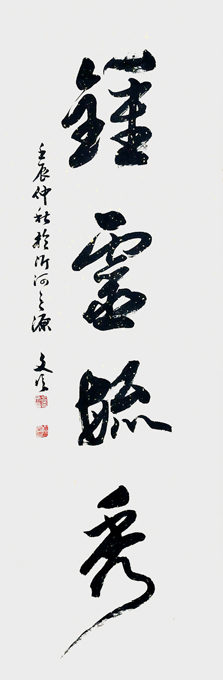 鍾靈毓秀
壬辰仲秋於沂河之源